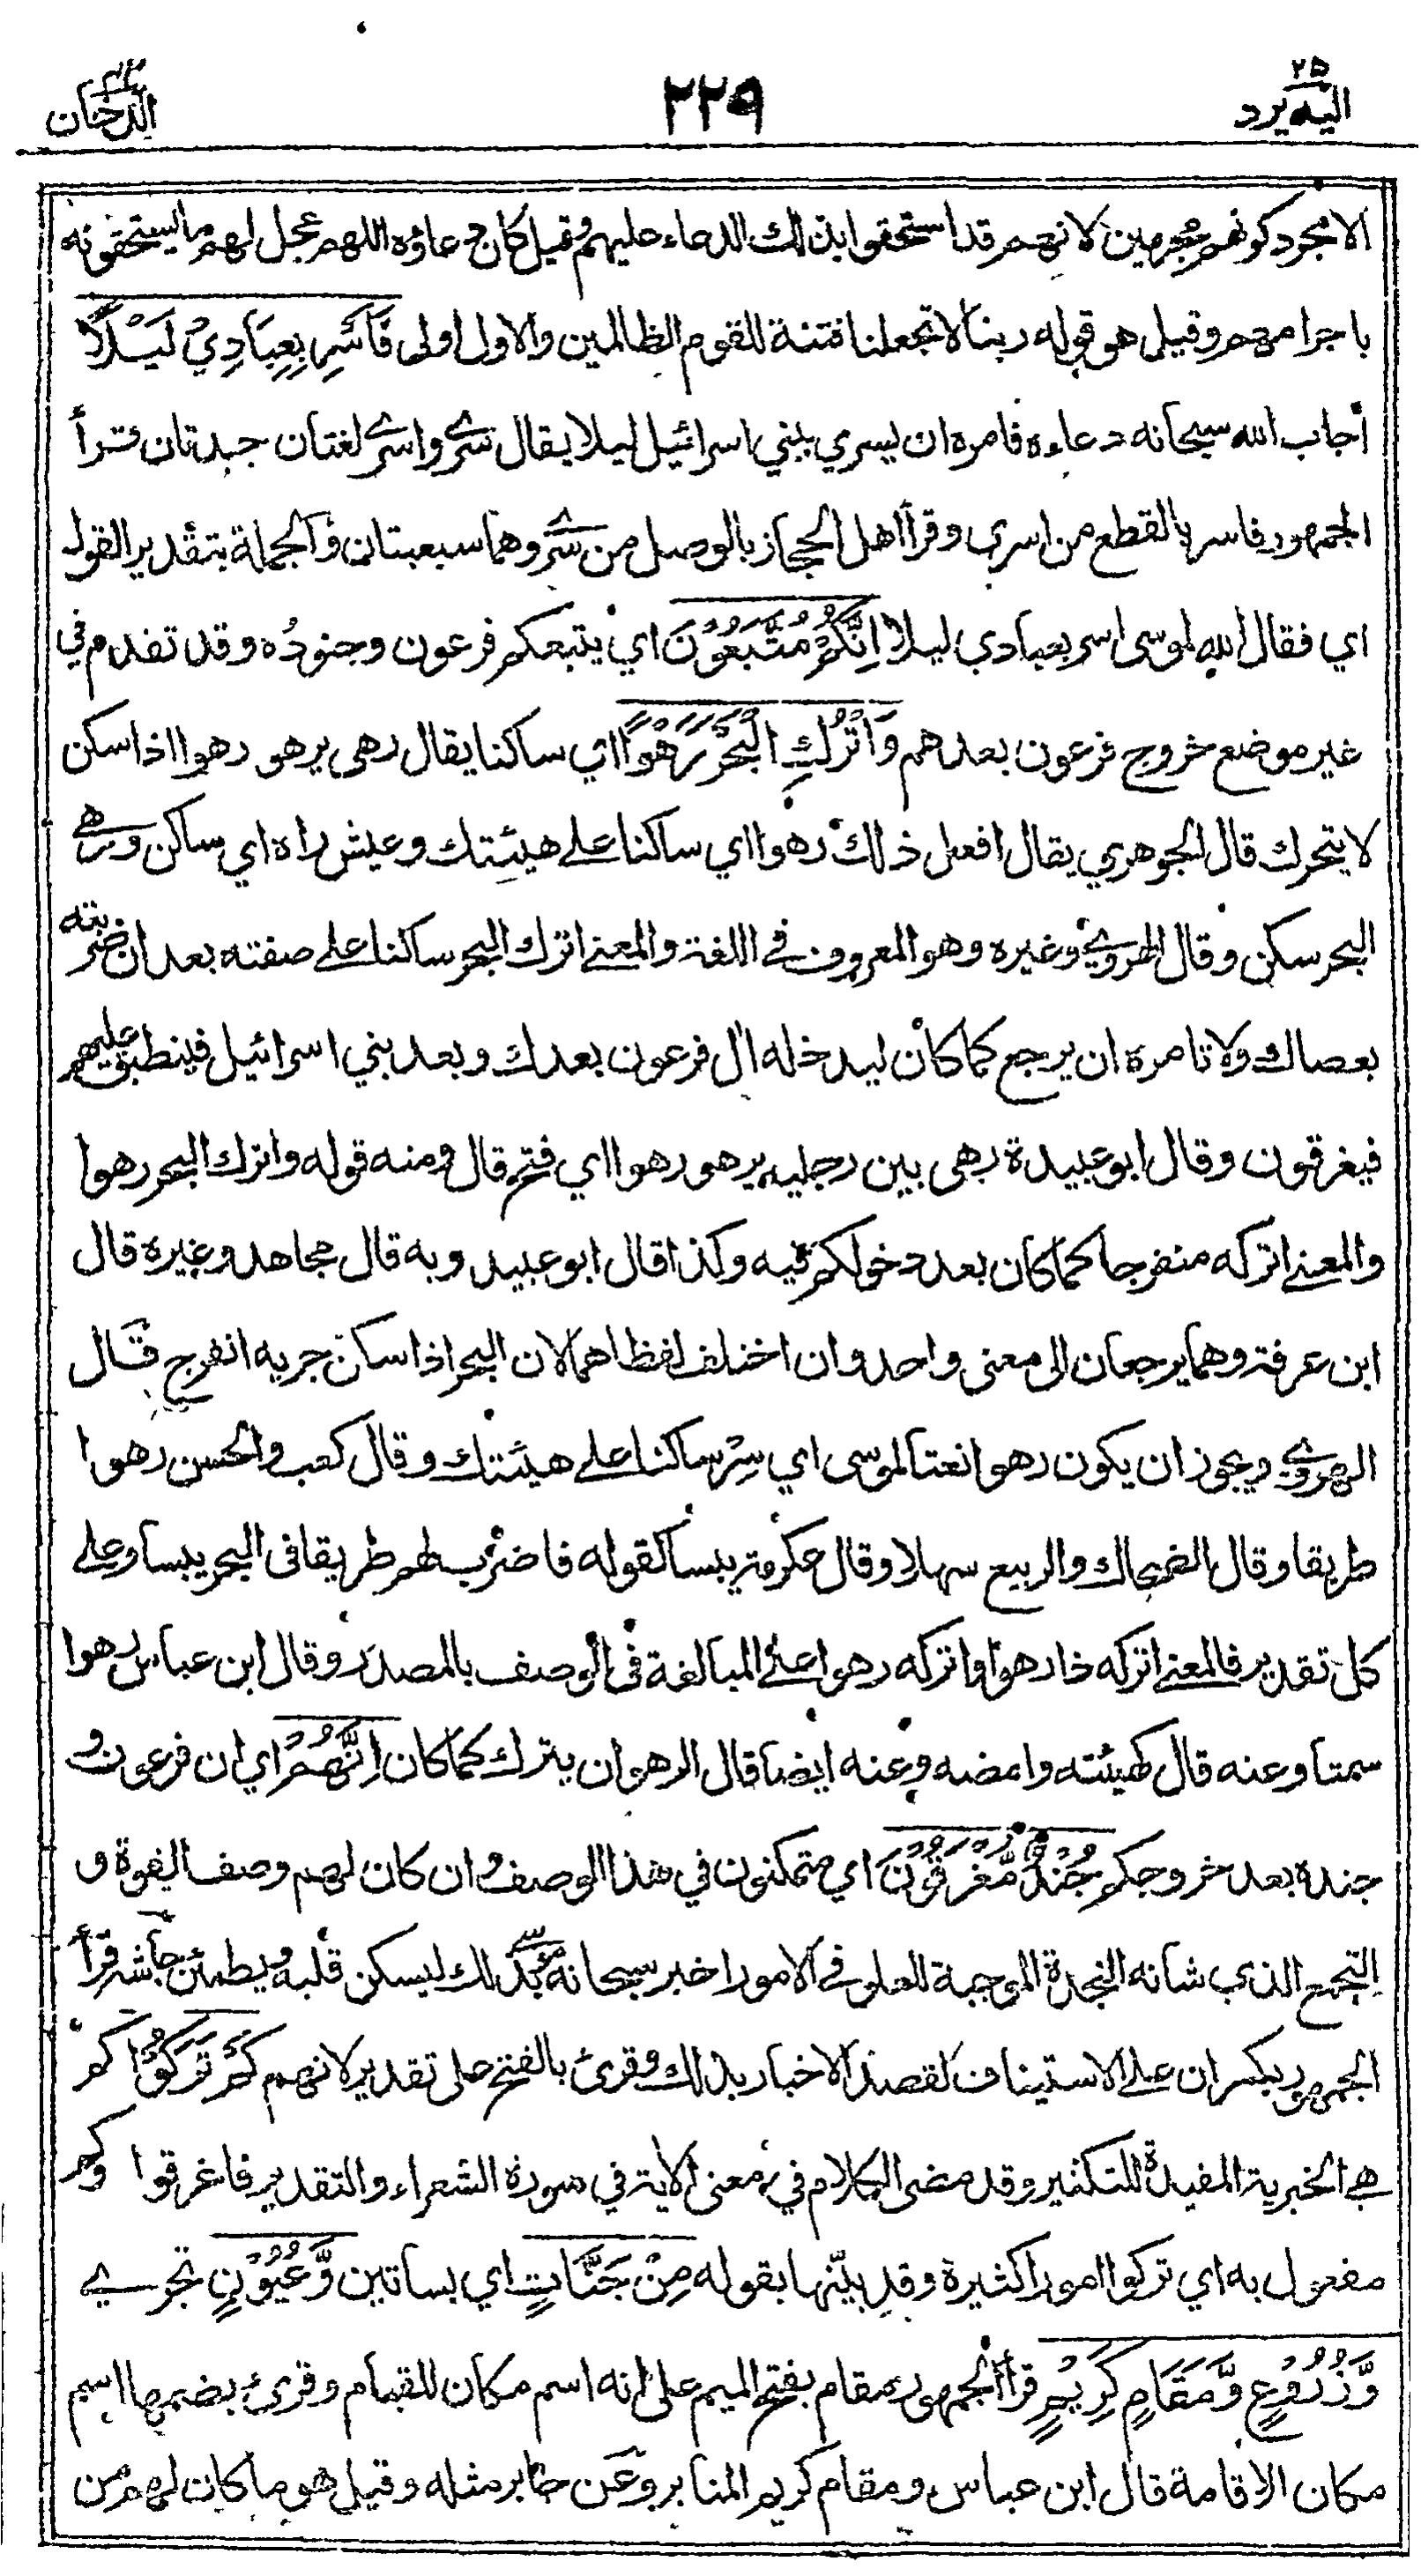 ٢٥
اليه يرد
٢٢٩
الدخان
الا مجرد كونهم مجرمين لانهم قد استحقوا بذلك الدعاء عليهم وقيل كان دعاؤه اللهم عجل لهم ما يستحقونه
باجرامهم وقيل هو قوله ربنا لا تجعلنا فتنة للقوم الظالمين والاول اولى فَاَسْرِ بِعِبَادِيْ لَيْلًا
أجاب الله سبحانه دعاءه فامره ان يسري ببني اسرائيل ليلا يقال سرى واسرى لغتان جيدتان قرأ
الجمهور فاسر بالقطع من اسرى وقرأ اهل الحجاز بالوصل من سرى وهما سبعيتان والجملة بتقدير القول
اي فقال الله لموسى اسر بعبادي ليلا اِنَّكُمْ مُّتَّبَعُوْنَ اي يتبعكم فرعون وجنوده وقد تقدم في
غير موضع خروج فرعون بعدهم وَاتْرُكِ الْبَحْرَ رَهْوًا اي ساكنا يقال رهى يرهو رهوا اذا سكن
لا يتحرك قال الجوهري يقال افعل ذلك رهوا اي ساكنا على هيئتك وعيش راه اي ساكن ورهى
البحر سكن وقال الهروي وغيره وهو المعروف في اللغة والمعنى اترك البحر ساكنا على صفته بعد ان ضربته
بعصاك ولا تامره ان يرجع كما كان ليدخله ال فرعون بعدك وبعد بني اسرائيل فينطبق عليهم
فيغرقون وقال ابو عبيدة رهى بين رجليه يرهو رهوا اي فتح قال ومنه قوله واترك البحر رهوا
والمعنى اتركه منفرجا كما كان بعد دخولكم فيه وكذا قال ابو عبيد وبه قال مجاهد وغيره قال
ابن عرفة وهما يرجعان الى معنى واحد وان اختلف لفظاهما لان البحر اذا سكن جريه انفرج قال
الهروي ويجوز ان يكون رهوا نعتا لموسى اي سِرْ ساكنا على هيئتك وقال كعب والحسن رهوا
طريقا وقال الضحاك والربيع سهلا وقال عكرمة يبسا لقوله فاضرب لهم طريقا في البحر يبسا وعلى
كل تقدير فالمعنى اتركه ذا رهوا واتركه رهوا على المبالغة في الوصف بالمصدر وقال ابن عباس رهوا
سمتا وعنه قال كهيئته وامضه وعنه ايضا قال الرهو ان يترك كما كان اِنَّهُمْ اي ان فرعون و
جنده بعد خروجكم جُنْدٌ مُّغْرَقُوْنَ اي متمكنون في هذا الوصف وان كان لهم وصف القوة و
التجمع الذي شانه النجدة الموجبة للعلو في الامور اخبر سبحانه موسى بذلك ليسكن قلبه ويطمئن جأشه قرأ
الجمهور بكسر ان على الاستيناف لقصد الاخبار بذلك وقرئ بالفتح على تقدير لانهم كَمْ تَرَكُوْا كم
هي الخبرية المفيدة للتكثير وقد مضى الكلام في معنى الاية في سورة الشعراء والتقدير فاغرقوا وكم
مفعول به اي تركوا امورا كثيرة وقد بيّنها بقوله مِنْ جَنَّاتٍ اي بساتين وَّعُيُوْنٍ تجري
وَّزُرُوْعٍ وَّمَقَامٍ كَرِيْمٍ قرأ الجمهور مقام بفتح الميم على انه اسم مكان للقيام وقرئ بضمها اسم
مكان الاقامة قال ابن عباس ومقام كريم المنابر وعن جابر مثله وقيل هو ما كان لهم من